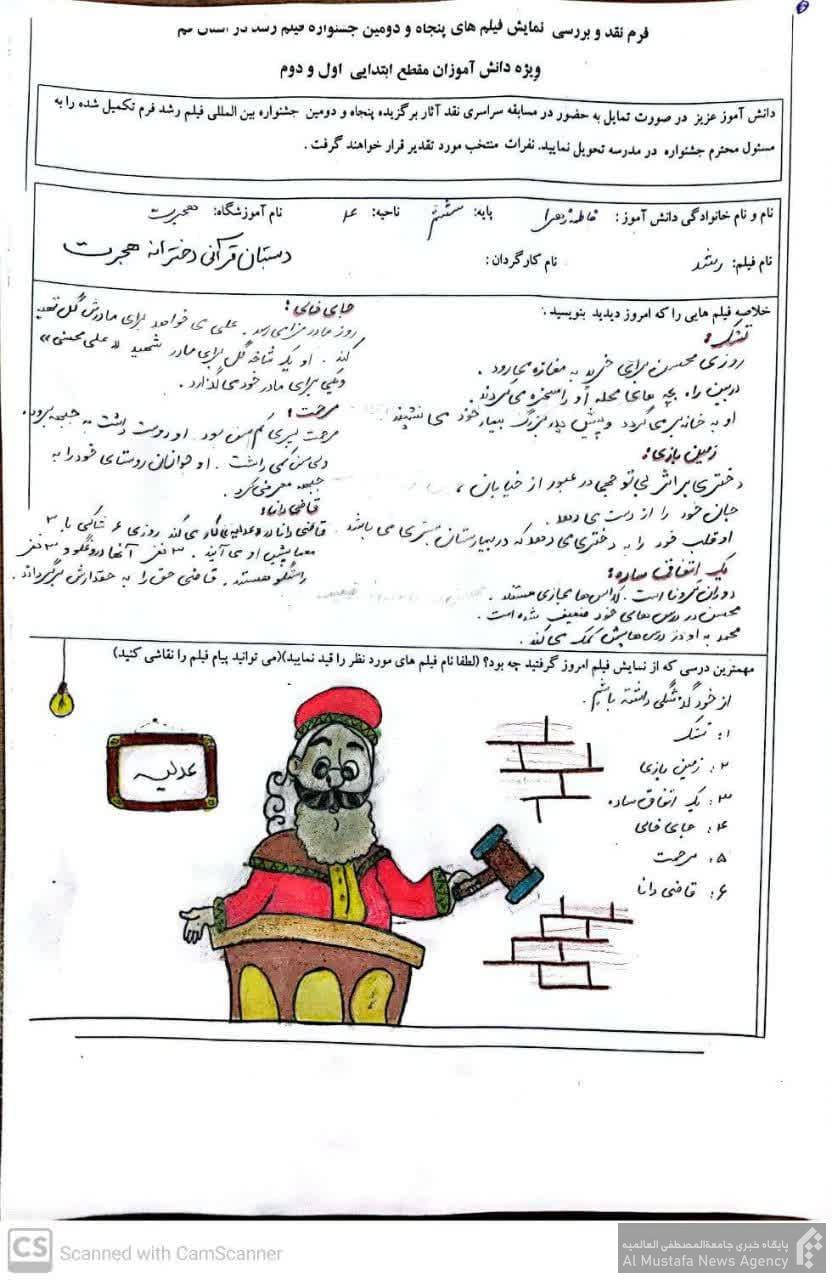 فرم نقد و بررسی نمایش فیلم های پنجاه و دومین جشنواره فیلم رشد در استان قم
ویژه دانش آموزان مقطع ابتدایی اول و دوم
دانش آموز عزیز در صورت تمایل به حضور در مسابقه سراسری نقد آثار برگزیده پنجاه و دومین جشنواره بین المللی فیلم رشد فرم تکمیل شده را به
مسئول محترم جشنواره در مدرسه تحویل نمایید. نفرات منتخب مورد تقدیر قرار خواهند گرفت.
نام و نام خانوادگی دانش آموز: فاطمه زهرا پایه: ششم ناحیه: نام آموزشگاه: هجرت
نام فیلم: رشد نام کارگردان:
دبستان قرآنی دخترانه هجرت
خلاصه فیلم هایی را که امروز دیدید بنویسید:
تشک:
روزی محسن برای خرید به مغازه می رود.
در بین راه بچه های محله او را مسخره می کردند.
او به خانه بر می گردد و پیش پدر بزرگ بیمار خود می نشیند
زمین بازی:
دختری بر اثر بی توجهی در عبور از خیابان،
جان خود را از دست می دهد.
او قلب خود را به دختری می دهد که در بیمارستان بستری می باشد.
یک اتفاق ساده:
دوران کرونا است. کلاس ها مجازی هستند.
محسن در درس های خود ضعیف شده است.
محمد به او در درس هایش کمک می کند.
جای خالی:
روز مادر فرا می رسد. علی می خواهد برای مادرش گل تهیه
کند. او یک شاخه گل برای مادر شهید «علی محسنی»
و یکی برای مادر خود می گذارد.
مرحمت:
مرحمت پسری کم سن بود. او دوست داشت به جبهه برود.
ولی سن کمی داشت. او جوانان روستای خود را به
جبهه معرفی کرد.
قاضی دانا:
قاضی دانا در «عدلیه» کار می کند روزی ۶ شاکی با ۳
معما پیش او می آیند. ۳ نفر آنها دروغگو و ۳ نفر
راستگو هستند. قاضی حق را به حقدارش بر می گرداند.
مهمترین درسی که از نمایش فیلم امروز گرفتید چه بود؟ (لطفا نام فیلم های مورد نظر را قید نمایید)(می توانید پیام فیلم را نقاشی کنید)
از خود گذشتگی داشته باشیم.
۱: تشک
۲: زمین بازی
۳: یک اتفاق ساده
۴: جای خالی
۵: مرحمت
۶: قاضی دانا
عدلیه
CS Scanned with CamScanner
پایگاه خبری جامعةالمصطفی العالمیه
Al Mustafa News Agency